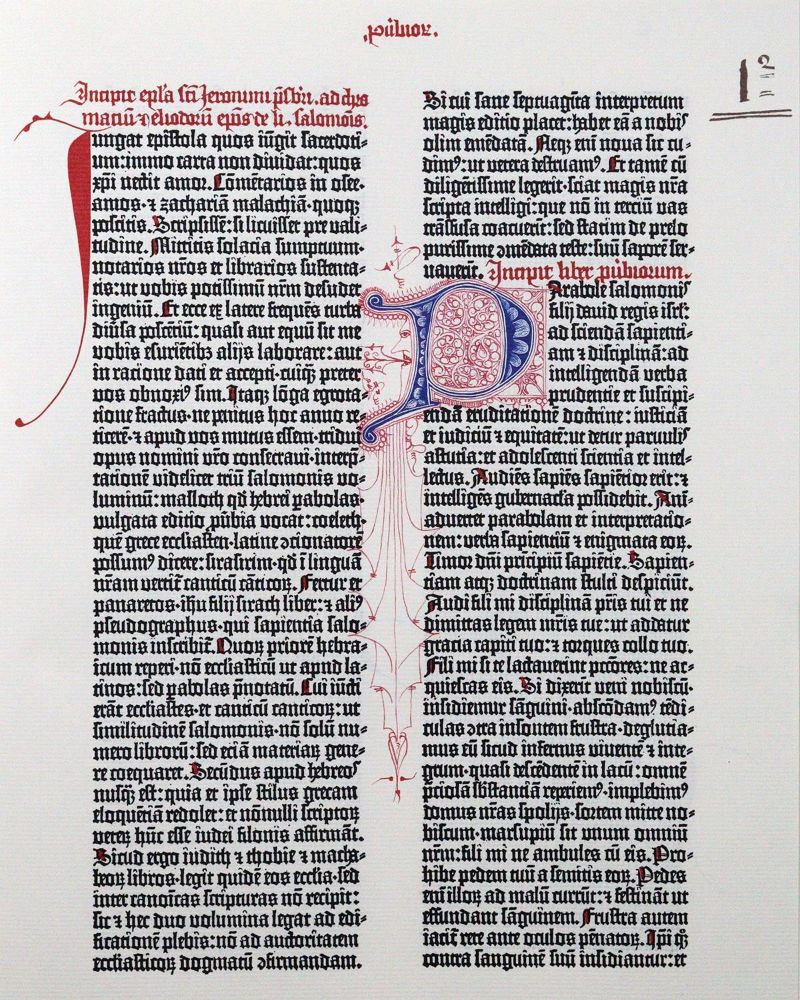 .puͥbior.
1ᵃ
Incipit epl'a sci̅ Jeronimi p̅sbri̅. ad chro
maciu̅ ⁊ eliodoru̅ ep̅os de li. salomo̅is.
Iungat epistola quos iu̅git sacerdoti-
um: immo carta non diuidat: quos
xp̅i nectit amor. Co̅me̅tarios in osee.
amos. ⁊ zachariam malachia̅. quoqꝫ
poscitis. Scripsisse̅: si licuisset pre vali-
tudine. Mittitis solacia sumptuum.
notarios nr̅os et librarios sustenta-
tis: ut vobis potissimu̅ nr̅m desudet
ingeniu̅. Et ecce ex latere freque̅s turba
diu̅sa posce̅tiu̅: quasi aut equu̅ sit me
vobis esurie̅tibꝫ alijs laborare: aut
in racione dati et accepti. cuiqꝫ preter
vos obnoxiꝰ sim. Itaqꝫ lo̅ga egrota-
tione fractus. ne penitus hoc anno re-
ticere̅. ⁊ apud vos mutus essem. tridui
opus nomini vr̅o consecraui. interp̅-
tatione̅ videlicet triu̅ salomonis vo-
luminu̅: masloth qd̅ hebrei pabolas.
vulgata editio pu̅bia vocat: coeleth.
que̅ grece ecclesiaste̅. latine ꝯcionatore̅
possumꝰ dicere: sirasirim. qd̅ i̅ lingua̅
nr̅am vertit̅ canticu̅ ca̅ticoꝝ. Fertur et
panaretos. ih̅u filij sirach liber: ⁊ aliꝰ
pseudographus. qui sapientia salo-
monis inscribit̅. Quoꝝ priore̅ hebra-
icum reperi. no̅ ecclesiasticu̅ ut apud la-
tinos: sed pabolas p̅notatu̅. Cui iu̅cti
era̅t ecclesiastes. et canticu̅ canticoꝝ: ut
similitudine̅ salomonis. no̅ solu̅ nu-
mero libroru̅: sed ecia̅ materiaꝝ gene-
re coequaret. Secu̅dus apud hebreos
nusqꝫ est: quia et ipse stilus grecam
eloque̅tia̅ redolet: et no̅nulli scriptoꝝ
veteꝝ hu̅c esse iudei filonis affirma̅t.
Sicud ergo iudith ⁊ thobie ⁊ macha-
beoꝝ libros. legit quide̅ eos ecclesia. sed
inter cano̅icas scripturas no̅ recipit:
sic ⁊ hec duo volumina legat ad edi-
ficatione̅ plebis: no̅ ad auctoritatem
ecclesiasticoꝝ dogmatu̅ ꝯfirmandam.
Si cui sane septuagi̅ta interpretum
magis editio placet: habet ea̅ a nobis
olim eme̅data̅. Neqꝫ eni̅ noua sic cu-
dimꝰ: ut vetera destruamꝰ. Et tame̅ cu̅
diligentissime legerit. sciat magis nr̅a
scripta intelligi: que no̅ in terciu̅ vas
tra̅sfusa coacuerit: sed statim de prelo
purissime ꝯme̅data teste: suu̅ sapore̅ ser-
uauerit. Incipit liber pu̅biorum.
Parabole salomonis
filij dauid regis isrl:
ad scienda̅ sapienti-
am ⁊ disciplina̅: ad
intelligenda̅ verba
prudentie et suscipi-
enda̅ eruditatione̅ doctrine: iusticia̅
et iudiciu̅ ⁊ equitate̅: ut detur paruulis
astutia: et adolescenti scientia et intel-
lectus. Audie̅s sapie̅s sapie̅tior erit: ⁊
intellige̅s gubernacla possidebit. Ani̅-
aduertet parabolam et interpretatio-
nem: verba sapientiu̅ ⁊ enigmata eoꝝ.
Timor dn̅i pricipiu̅ sapie̅tie. Sapien-
tiam atqꝫ doctrinam stulti despiciu̅t.
Audi fili mi disciplina̅ pr̅is tui et ne
dimittas legem mr̅is tue: ut addatur
gracia capiti tuo: ⁊ torques collo tuo.
Fili mi si te lactauerint pcc̅ores: ne ac-
quiescas eis. Si dixerit veni nobiscu̅.
insidiemur sa̅guini. absco̅damꝰ te̅di-
culas ꝯtra insontem frustra. deglutia-
mus eu̅ sicud infernus viuente̅ ⁊ inte-
grum. quasi desce̅dente̅ in lacu̅: omne̅
p̅ciosa̅ sbstancia̅ reperiemꝰ. implebimꝰ
domus nr̅as spolijs. sortem mitte no-
biscum. marsupiu̅ sit vnum omniu̅
nr̅m: fili mi ne ambules cu̅ eis. Pro-
hibe pedem tuu̅ a semitis eoꝝ. Pedes
eni̅ illoꝝ ad malu̅ curru̅t: ⁊ festina̅t ut
effundant sa̅guinem. Frustra autem
iacit̅ rete ante oculos pe̅natoꝝ. Ip̅i qꝫ
contra sanguine̅ suu̅ insidiantur: et